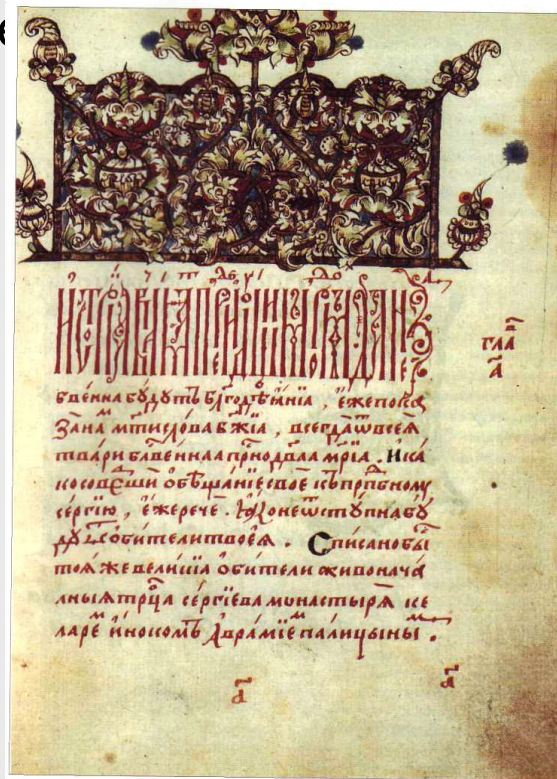 гла҃
а҃
бвенна будутъ бл҃годѣѧнїа, ёже пока
за на мⷨ мт҃и слова бж҃їа, всегда ѿ всеѧ
твари бл҃венна а прⷭнодв҃ла мр҃їа. И ка
ко сове҃ши обѣщанїе своё къ прпⷣбному
сергїю, ёже рече.
неѿступна бу
ду ѿ обители твоеѧ. Списано бы҃
тоѧ же обители живонача
лныѧ трⷪ҇ца сергїева монастырѧ ке
ларемⷨ инокомъ аврамїемⷨ палицынымⷨ.
а҃
а҃